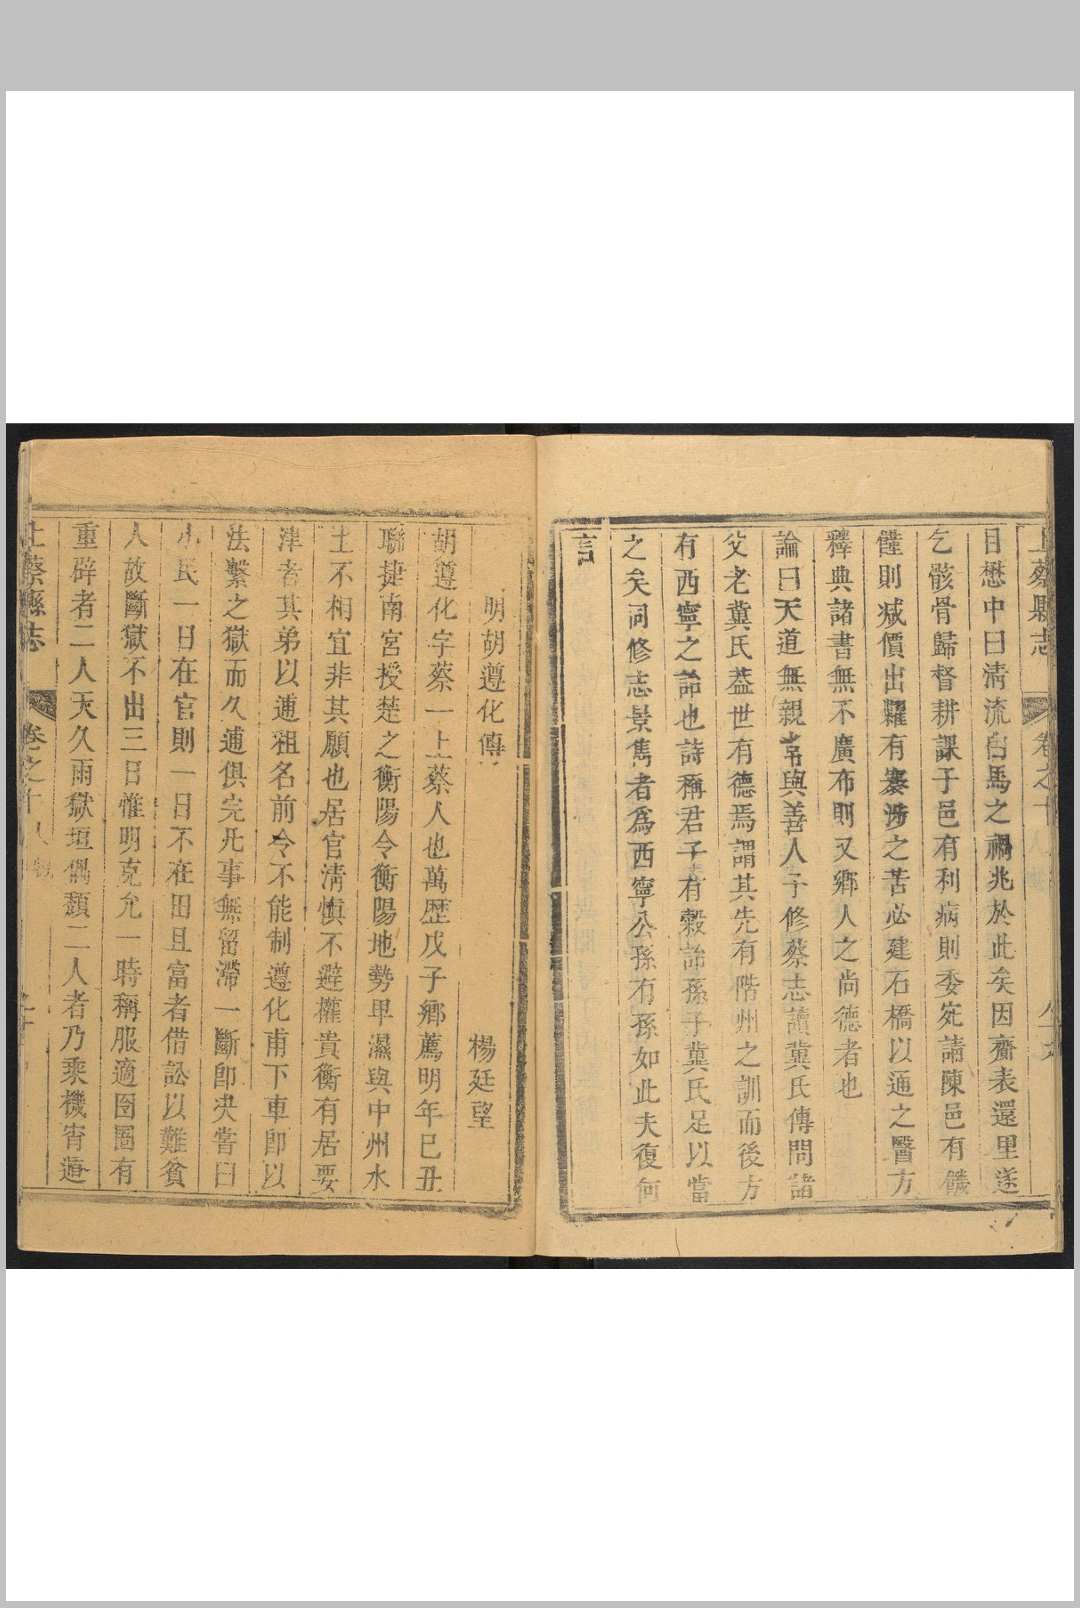 上蔡縣志 卷之十
目懋中曰清流白馬之禍兆於此矣因齎表還里遂
乞骸骨歸督耕課子邑有利病則委宛請陳邑有饑
饉則減價出糶有褰涉之苦必建石橋以通之醫方
釋典諸書無不廣布則又鄉人之尚德者也
論曰天道無親常與善人予修蔡志讀冀氏傳問諸
父老冀氏葢世有德焉謂其先有階州之訓而後方
有西寧之諭也詩稱君子有穀詒孫子冀氏足以當
之矣同修志景雋者爲西寧公孫有孫如此夫復何
言
明胡遵化傳
楊廷望
胡遵化字蔡一上蔡人也萬歷戊子鄉薦明年己丑
聯捷南宮授楚之衡陽令衡陽地勢卑濕與中州水
土不相宜非其願也居官清慎不避權貴衡有居要
津者其弟以逋租名前令不能制遵化甫下車即以
法繫之獄而久逋俱完凡事無留滯一斷即决嘗曰
小民一日在官則一日不在田且富者借訟以難貧
人故斷獄不出三日惟明克允一時稱服適囹圄有
重辟者二人天久雨獄垣偶頹二人者乃乘機宵遁
上蔡縣志 卷之十 人物